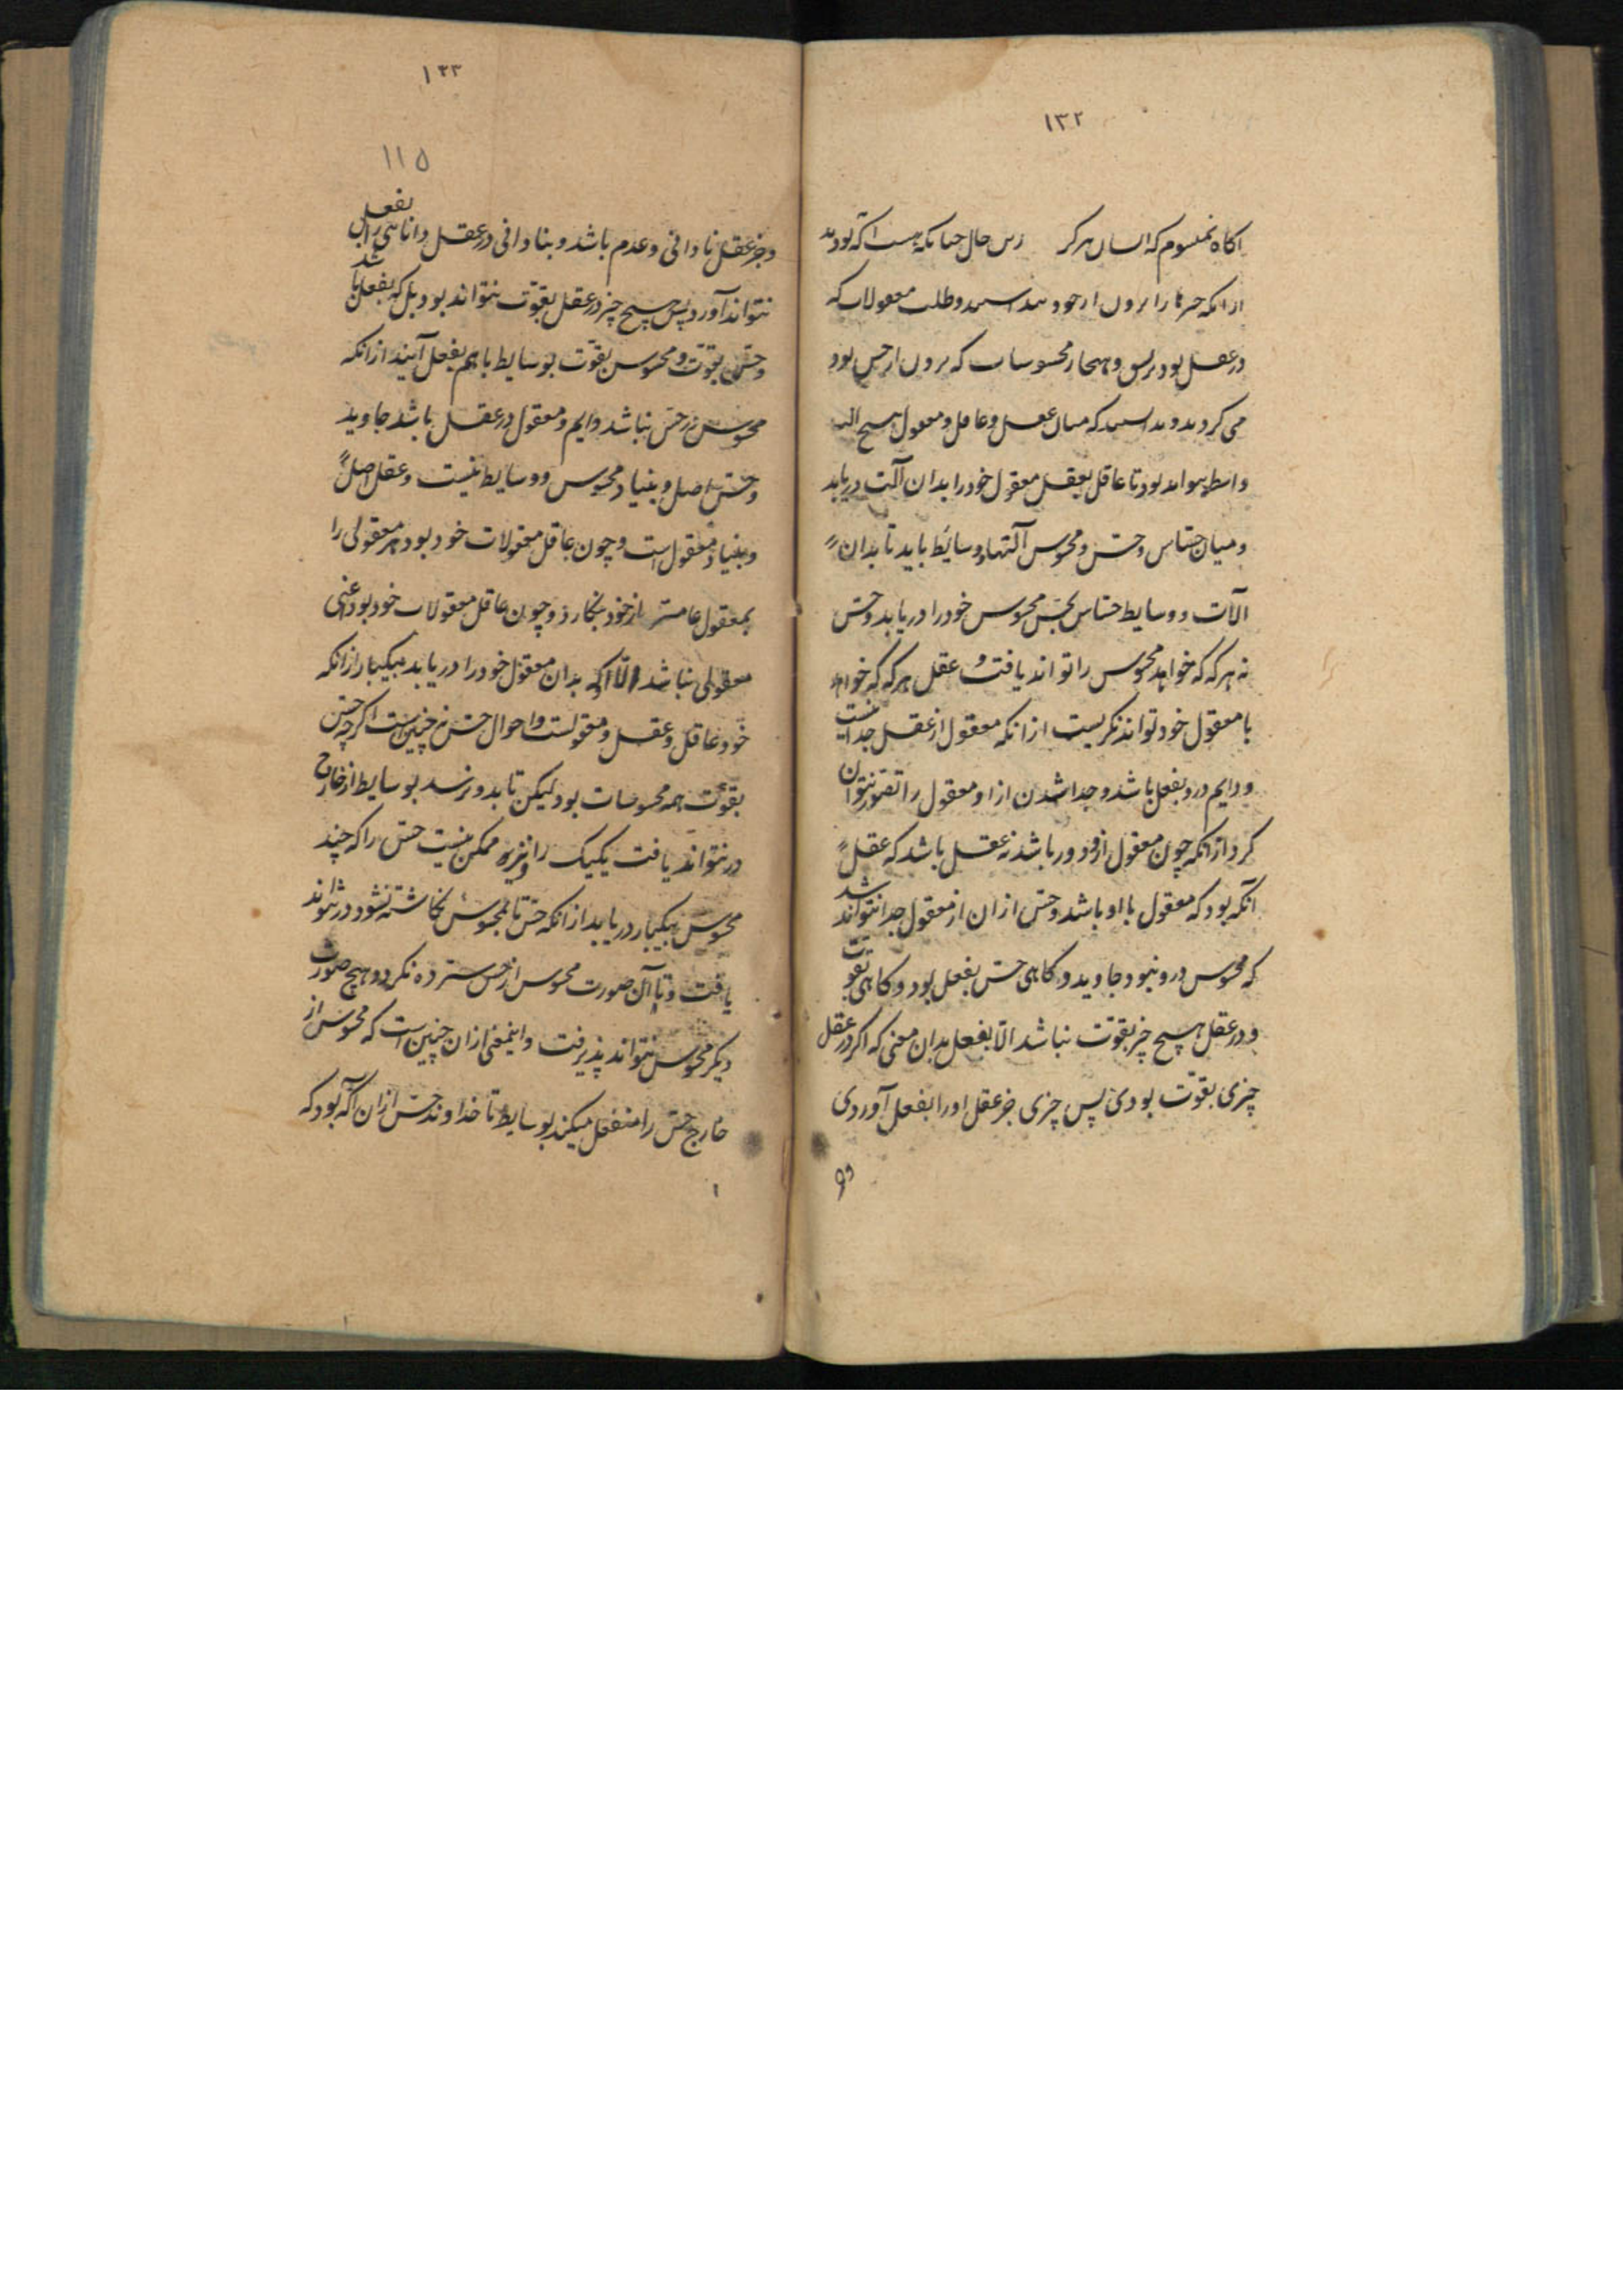 ۱۳۲
اکاه نمیشوم که انسان هرگز زین حال چنانکه هست آگه بودند
ازانکه چیزها را برون از خود بنداشتند و طلب معقولات که
در عقل بود برین و هنجار محسوسات که برون از حس بود
می کردند و بدانستند که میان عقل و عاقل و معقول هیچ آلت
واسطه نتواند بود تا عاقل بعقل معقول خود را بدان آلت دریابد
و میان حساس و حس و محسوس آلتها و وسایط باید تا بدان
آلات و وسایط حساس بحس محسوس خود را دریابد و حس
نه هرگه که خواهد محسوس را تواند یافت و عقل هرگه که خواهد
با معقول خود تواند نگریست ازانکه معقول از عقل جدا نیست
و دایم درو بفعل باشد و جدا شدن ازاو معقول را تصور نتوان
کرد ازانکه چون معقول ازو دور باشد نه عقل باشد که عقل
آنگه بود که معقول با او باشد و حس ازان از معقول جدا تواند شد
که محسوس درو نبود جاوید و گاهی حس بفعل بود و گاهی بقوت
و در عقل هیچ چیز بقوت نباشد الا بفعل بدان معنی که اگر در عقل
چیزی بقوت بودی پس چیزی جز عقل او را بفعل آوردی
۱۳۳
۱۱۵
و جز عقل نادانی و عدم باشد و بنادانی در عقل دانائی را بفعل
نتواند آورد پس هیچ چیز در عقل بقوت نتواند بود بل که بفعل باشد
و حس بقوت و محسوس بقوت بوسایط با هم بفعل آیند ازانکه
محسوس در حس نباشد دایم و معقول در عقل باشد جاوید
و حس اصل و بنیاد محسوس و وسایط نیست و عقل اصل
و بنیاد معقول است و چون عاقل معقولات خود بود هر معقولی را
بمعقول عامتر از خود بنگارد و چون عاقل معقولات خود بود اعنی
معقولی نباشد الا آنکه بدان معقول خود را دریابد بیکبار ازانکه
خود عاقل و عقل و معقولست و احوال حس نه چنین است اگرچه حس
بقوت همه محسوسات بود لیکن تا بدو نرسد بوسایط از خارج
در نتواند یافت یکیک را و نیز ممکن نیست حس را که چند
محسوس بیکبار دریابد ازانکه حس تا بمحسوس نگاشته نشود در نتواند
یافت و تا آن صورت محسوس از حس سترده نگردد هیچ صورت
دیگر محسوس نتواند پذیرفت و اینمعنی ازان چنین است که محسوس از
خارج حس را منفعل میکند بوسایط تا خداوند حس ازان آگه بود که